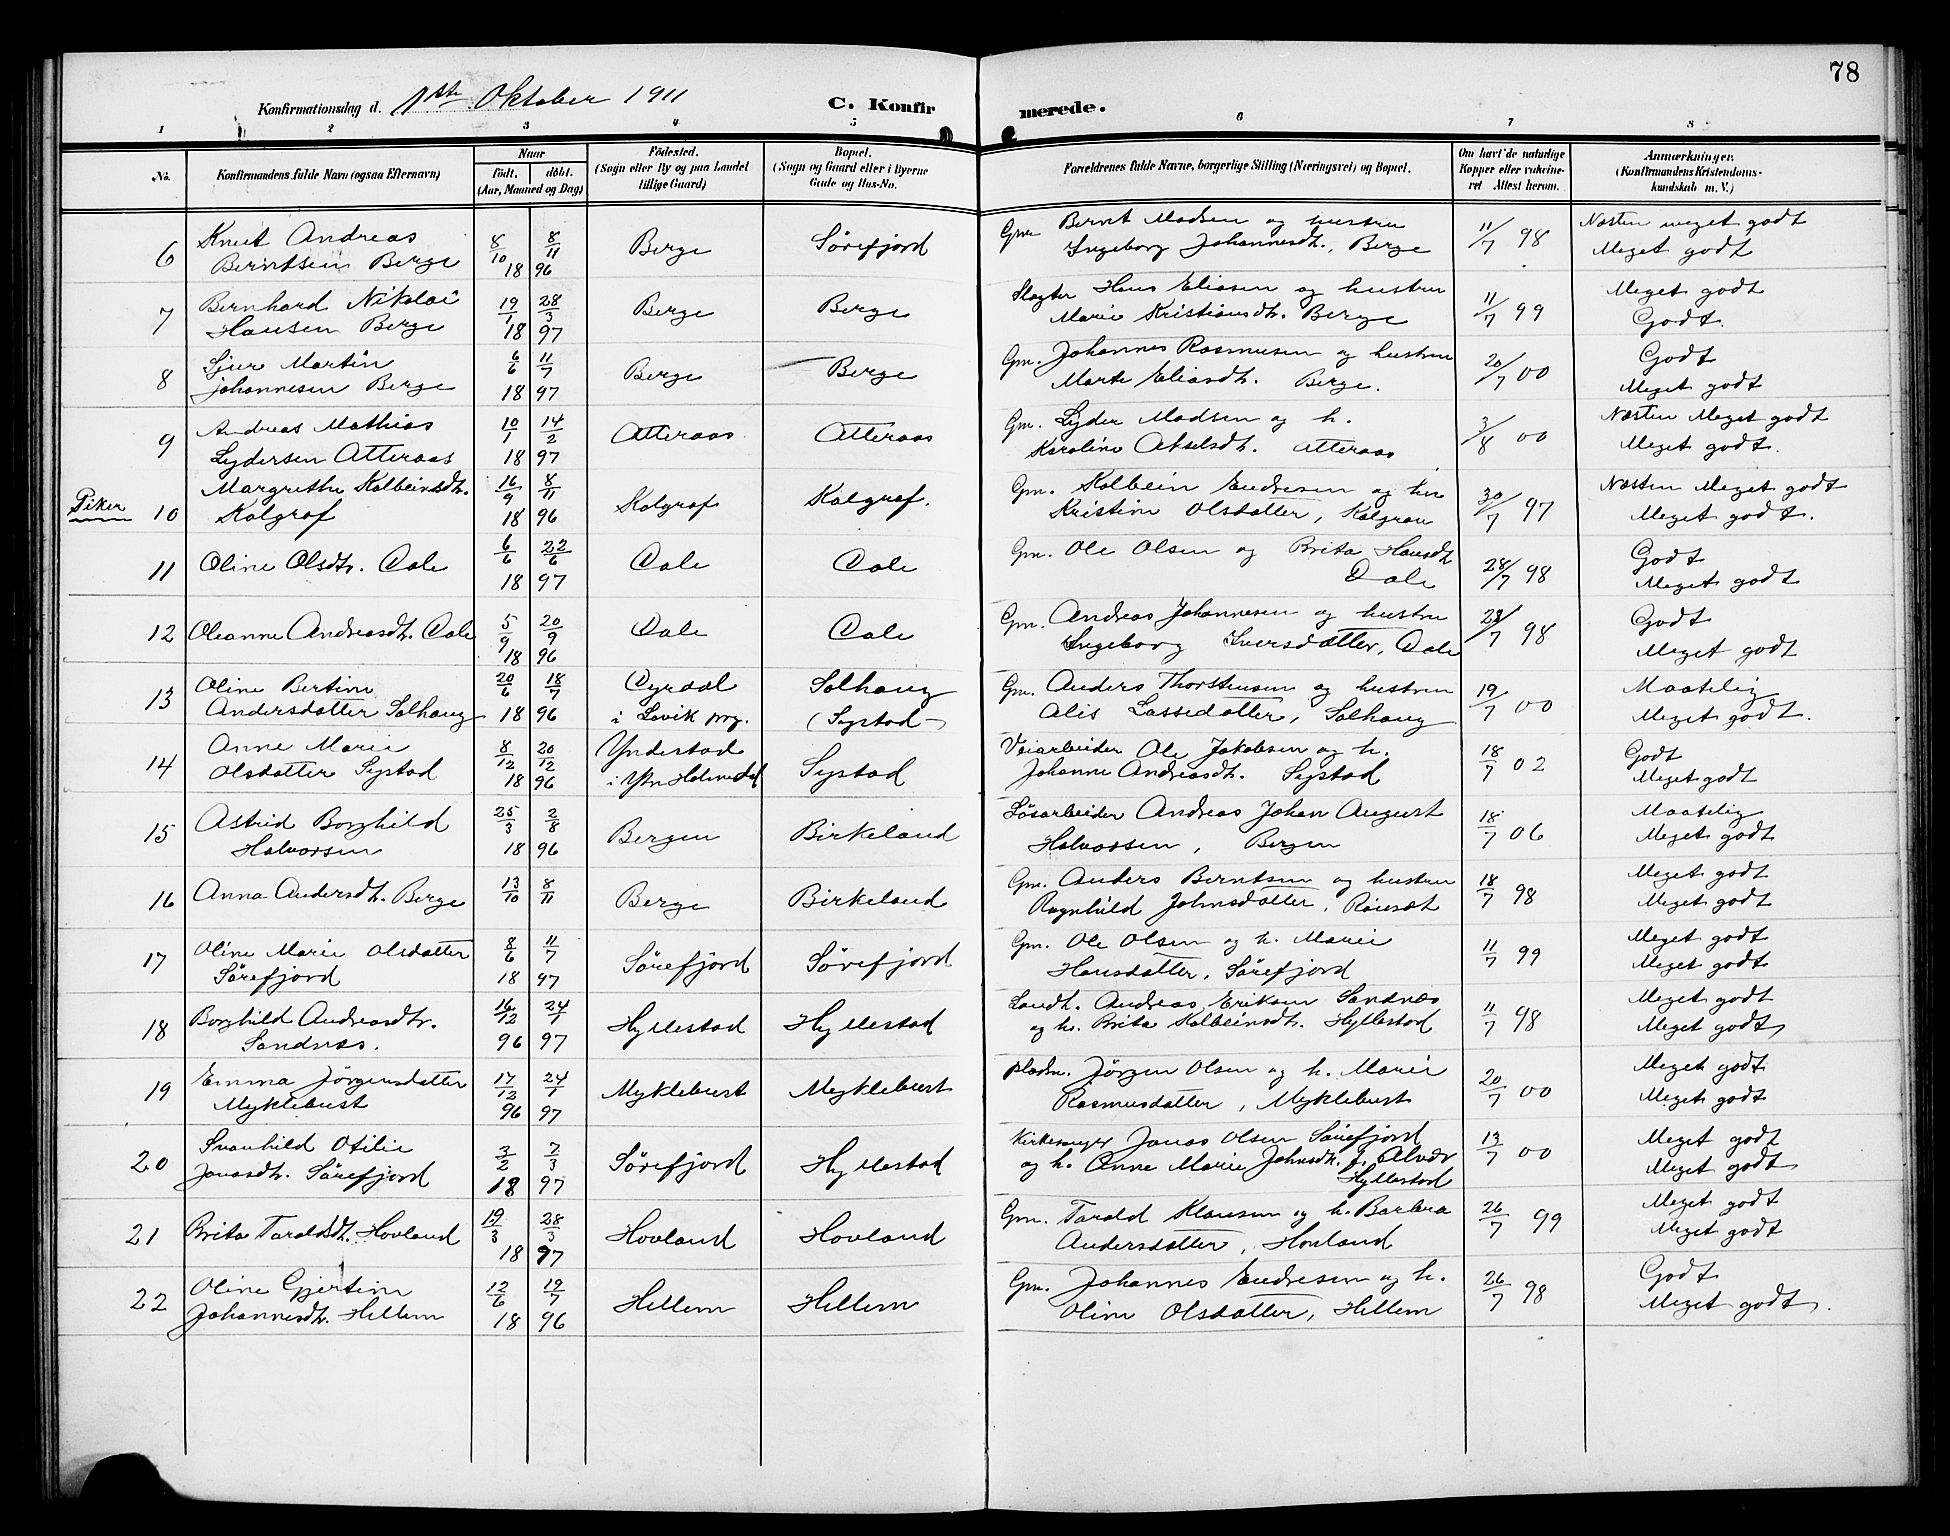 78
Konfirmationsdag d. 1ste Oktober 1911 C. Konfirmerede.
1 2 3 4 5 6 7 8
No. Konfirmandens fulde Navn (ogsaa Efternavn) Naar födt. döbt. (Aar, Maaned og Dag) Födested. (Sogn eller By og paa Landet tillige Gaard) Bopæl. (Sogn og Gaard eller i Byerne Gade og Hus-No. Forældrenes fulde Navne, borgerlige Stilling (Næringsvei) og Bopæl. Om havt de naturlige Kopper eller vaccineret. Attest herom. Anmærkninger. (Konfirmandens Kristendomskundskab m. V.)
6 Knut Andreas 8/10 8/11 Berge Sørefjord Gm. Bernt Madsen og hustru 11/7 98 Næsten meget godt
Berntsen Berge 18 96 Ingeborg Johannesdt., Berge Meget godt
7 Bernhard Nikolai 19/1 28/3 Berge Berge Slagter Hans Eliasen og hustru 11/7 99 Meget godt
Hansen Berge 18 97 Marie Kristiansdt. Berge Godt.
8 Sjur Martin 6/6 11/7 Berge Berge Gm. Johannes Rasmusen og hustru 20/7 00 Godt
Johannesen Berge 18 97 Marte Eliasdt. Berge. Meget godt
9 Andreas Mathias 10/1 14/2 Atteraas Atteraas Gm. Lyder Madsen og h. 3/8 00 Næsten Meget godt
Lydersen Atteraas 18 97 Karoline Akselsdt. Atteraas Meget godt.
Piker 10 Margrethe Kolbeinsdt. 16/9 8/11 Kalgraf Kalgraf. Gm. Kolbein Endresen og hu 30/7 97 Næsten Meget godt
Kalgraf 18 96 Kristine Olsdatter, Kalgrav Meget godt.
11 Oline Olsdt. Dale 6/6 22/6 Dale Dale Gm. Ole Olsen og Brita Hansdt. 28/7 98 Godt
18 97 Dale Meget godt
12 Oleanne Andreasdt. Dale 5/9 20/9 Dale Dale Gm. Andreas Johannesen og hustru 28/7 98 Godt
18 96 Ingeborg Iversdatter, Dale Meget godt
13 Oline Bertine 20/6 18/7 Dyrdal Solhaug Gm. Anders Thorstensen og hustru 19/7 00 Maatelig
Andersdatter Solhaug 18 96 i Lavik prg. (Systad - Alis Lassedatter, Solhaug Meget godt.
14 Anne Marie 8/12 20/12 Yndestad Systad Veiarbeider Ole Jakobsen og h. 18/7 02 Godt
Olsdatter Systad 18 96 i Ytr. Holmedal Johanne Andreasdt. Systad Meget godt
15 Astrid Borghild 25/3 2/8 Bergen Birkeland Løsarbeider Andreas Johan August 18/7 06 Maatelig
Halvorsen 18 96 Halvorsen, Bergen Meget godt
16 Anna Andersdt. Berge 13/10 8/11 Berge Birkeland Gm. Anders Berntsen og hustru 18/7 98 Meget godt
Ragnhild Johnsdatter, Meget godt
17 Oline Marie Olsdatter 8/6 11/7 Sørefjord Sørefjord Gm. Ole Olsen og h. Marie 11/7 99 Meget godt
Sørefjord 18 97 Hansdatter, Sørefjord Meget godt
18 Borghild Andreasdtr. 16/12 24/1 Hyllestad Hyllestad Landh. Andreas Eriksen Sandnæs 11/7 98 Meget godt
Sandnæs. 96 97 og h. Brita Kolbeinsdt. Hyllestad Meget godt
19 Emma Jørgensdatter 17/12 24/1 Myklebust Myklebust pladsm. Jørgen Olsen og h. Marie 20/7 00 Meget godt
Myklebust 96 97 Rasmusdatter, Myklebust Meget godt
20 Svanhild Otilie 3/2 7/3 Sørefjord Hyllestad Kirkesanger Jonas Olsen Sørefjord 13/7 00 Meget godt
Jonasdt. Sørefjord 18 97 og h. Anne Marie Johnsdt. f. Alvær Meget godt
Hyllestad
21 Brita Taraldsdt. Hovland 19/3 28/3 Hovland Hovland Gm. Tarald Klausen og h. Barbra 26/7 99 Meget godt
18 97 Andersdatter, Hovland Meget godt
22 Oline Gjertine 12/6 19/7 Hellem Hellem Gm. Johannes Endresen og h. 26/7 98 Godt
Johannesdt. Hellem 18 96 Oline Olsdatter, Hellem Meget godt.